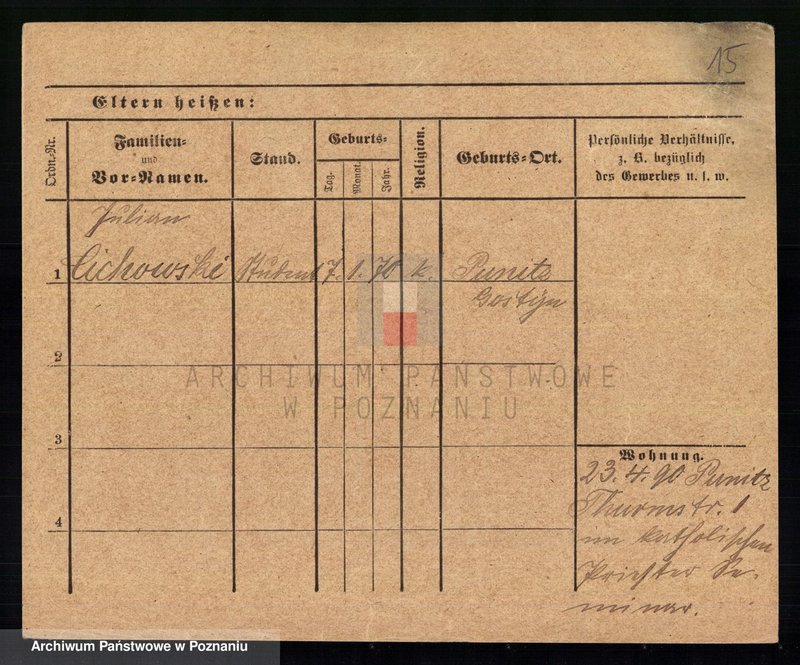 15
Eltern heißen:
Ordn.-Nr.
Familien-
und
Vor-Namen.
Stand.
Geburts-
Tag.
Monat.
Jahr.
Religion.
Geburts-Ort.
Persönliche Verhältnisse,
z. B. bezüglich
des Gewerbes u. s. w.
Julian
1 Cichowski Student 7. 1. 70 k. Punitz
Gostyn
2
3
4
Wohnung.
23.4.90 Punitz
Thurmstr. 1
im katholischen
Priester Se-
minar.
ARCHIWUM PAŃSTWOWE
W POZNANIU
Archiwum Państwowe w Poznaniu